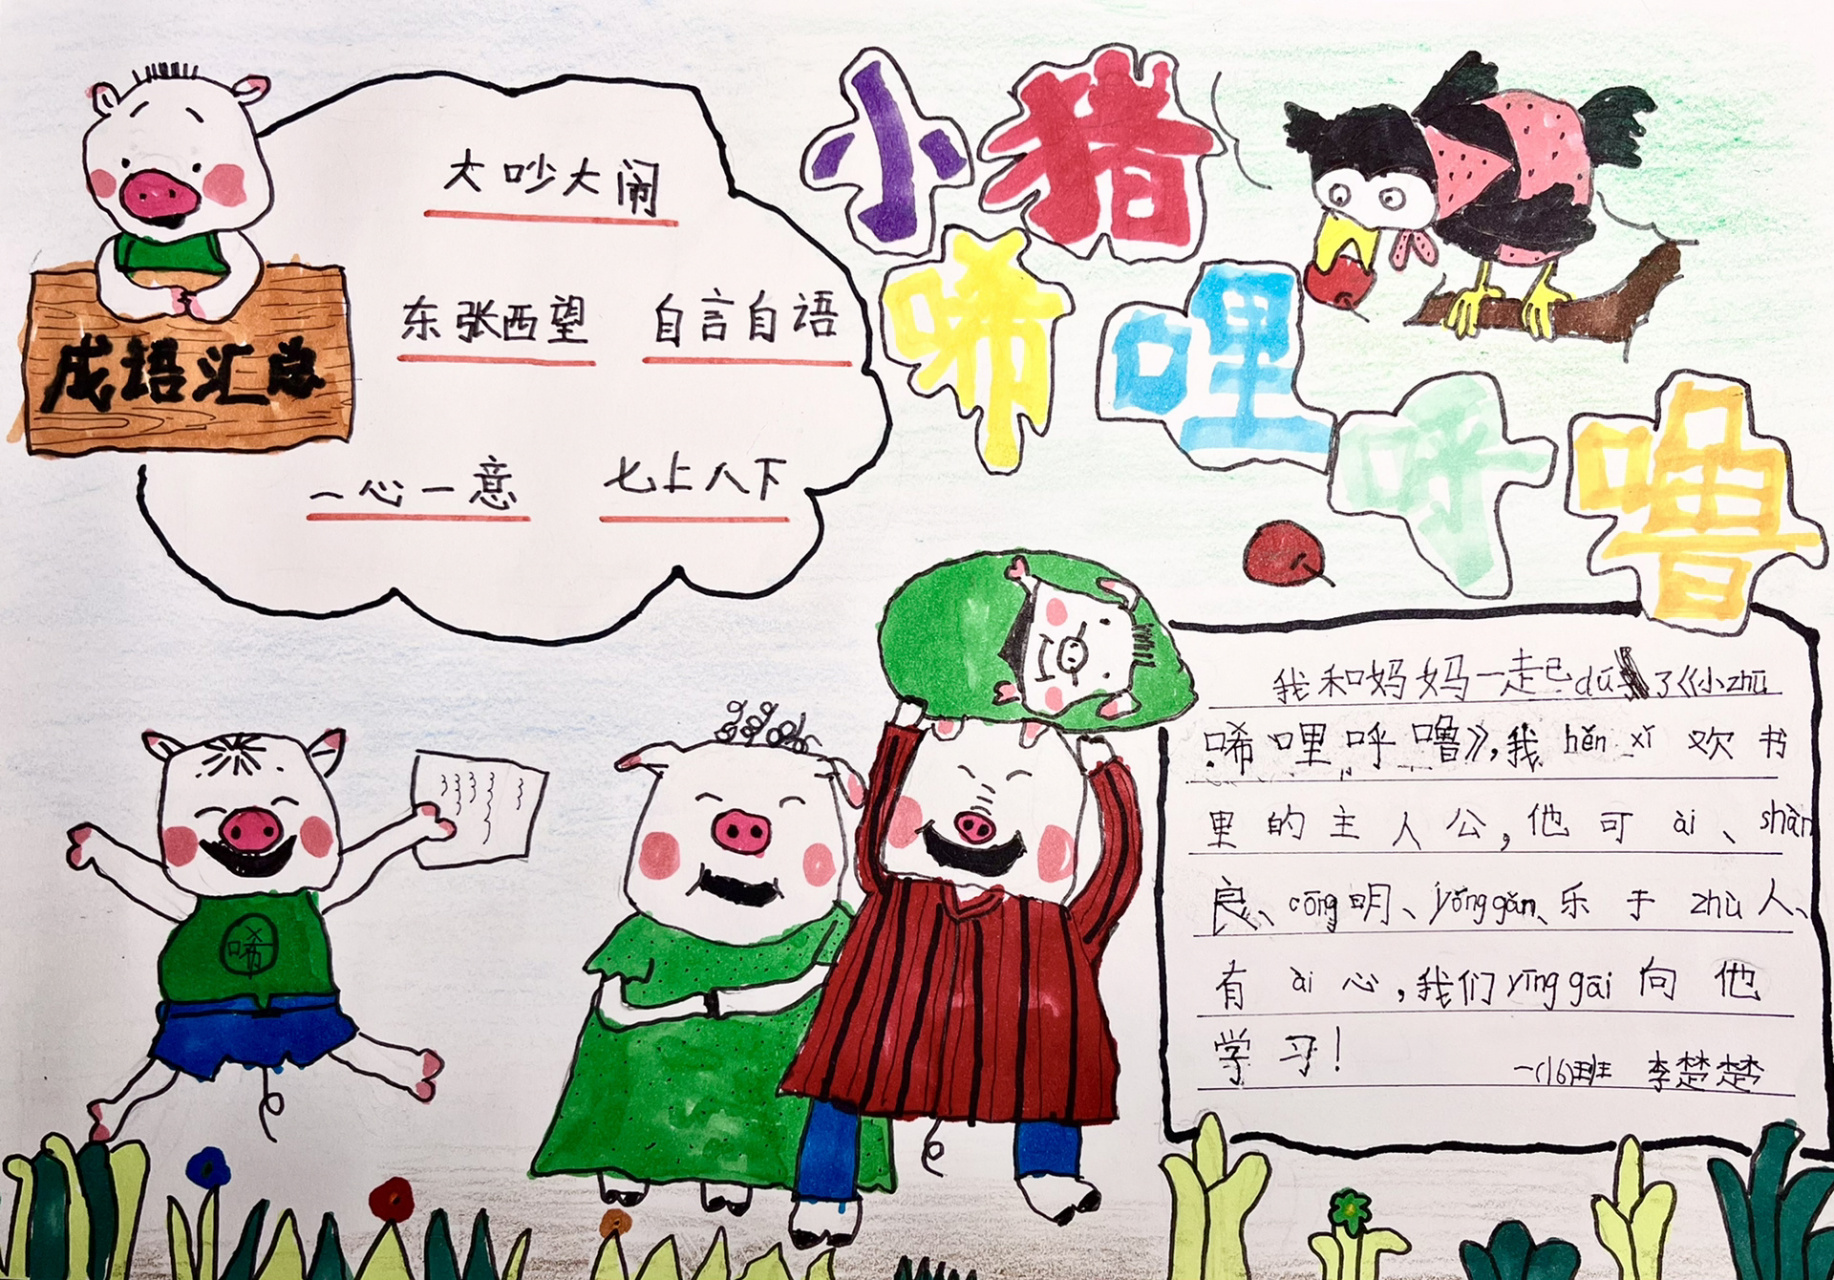 小猪
唏哩呼噜
成语汇总
大吵大闹
东张西望 自言自语
一心一意 七上八下
唏
我和妈妈一起dú了《小zhū
唏哩呼噜》，我hěn xǐ欢书
里的主人公，他可ài、shàn
良、cōng明、yǒnggǎn、乐于zhù人、
有ài心，我们yīnggāi向他
学习！
一(16)班 李楚楚